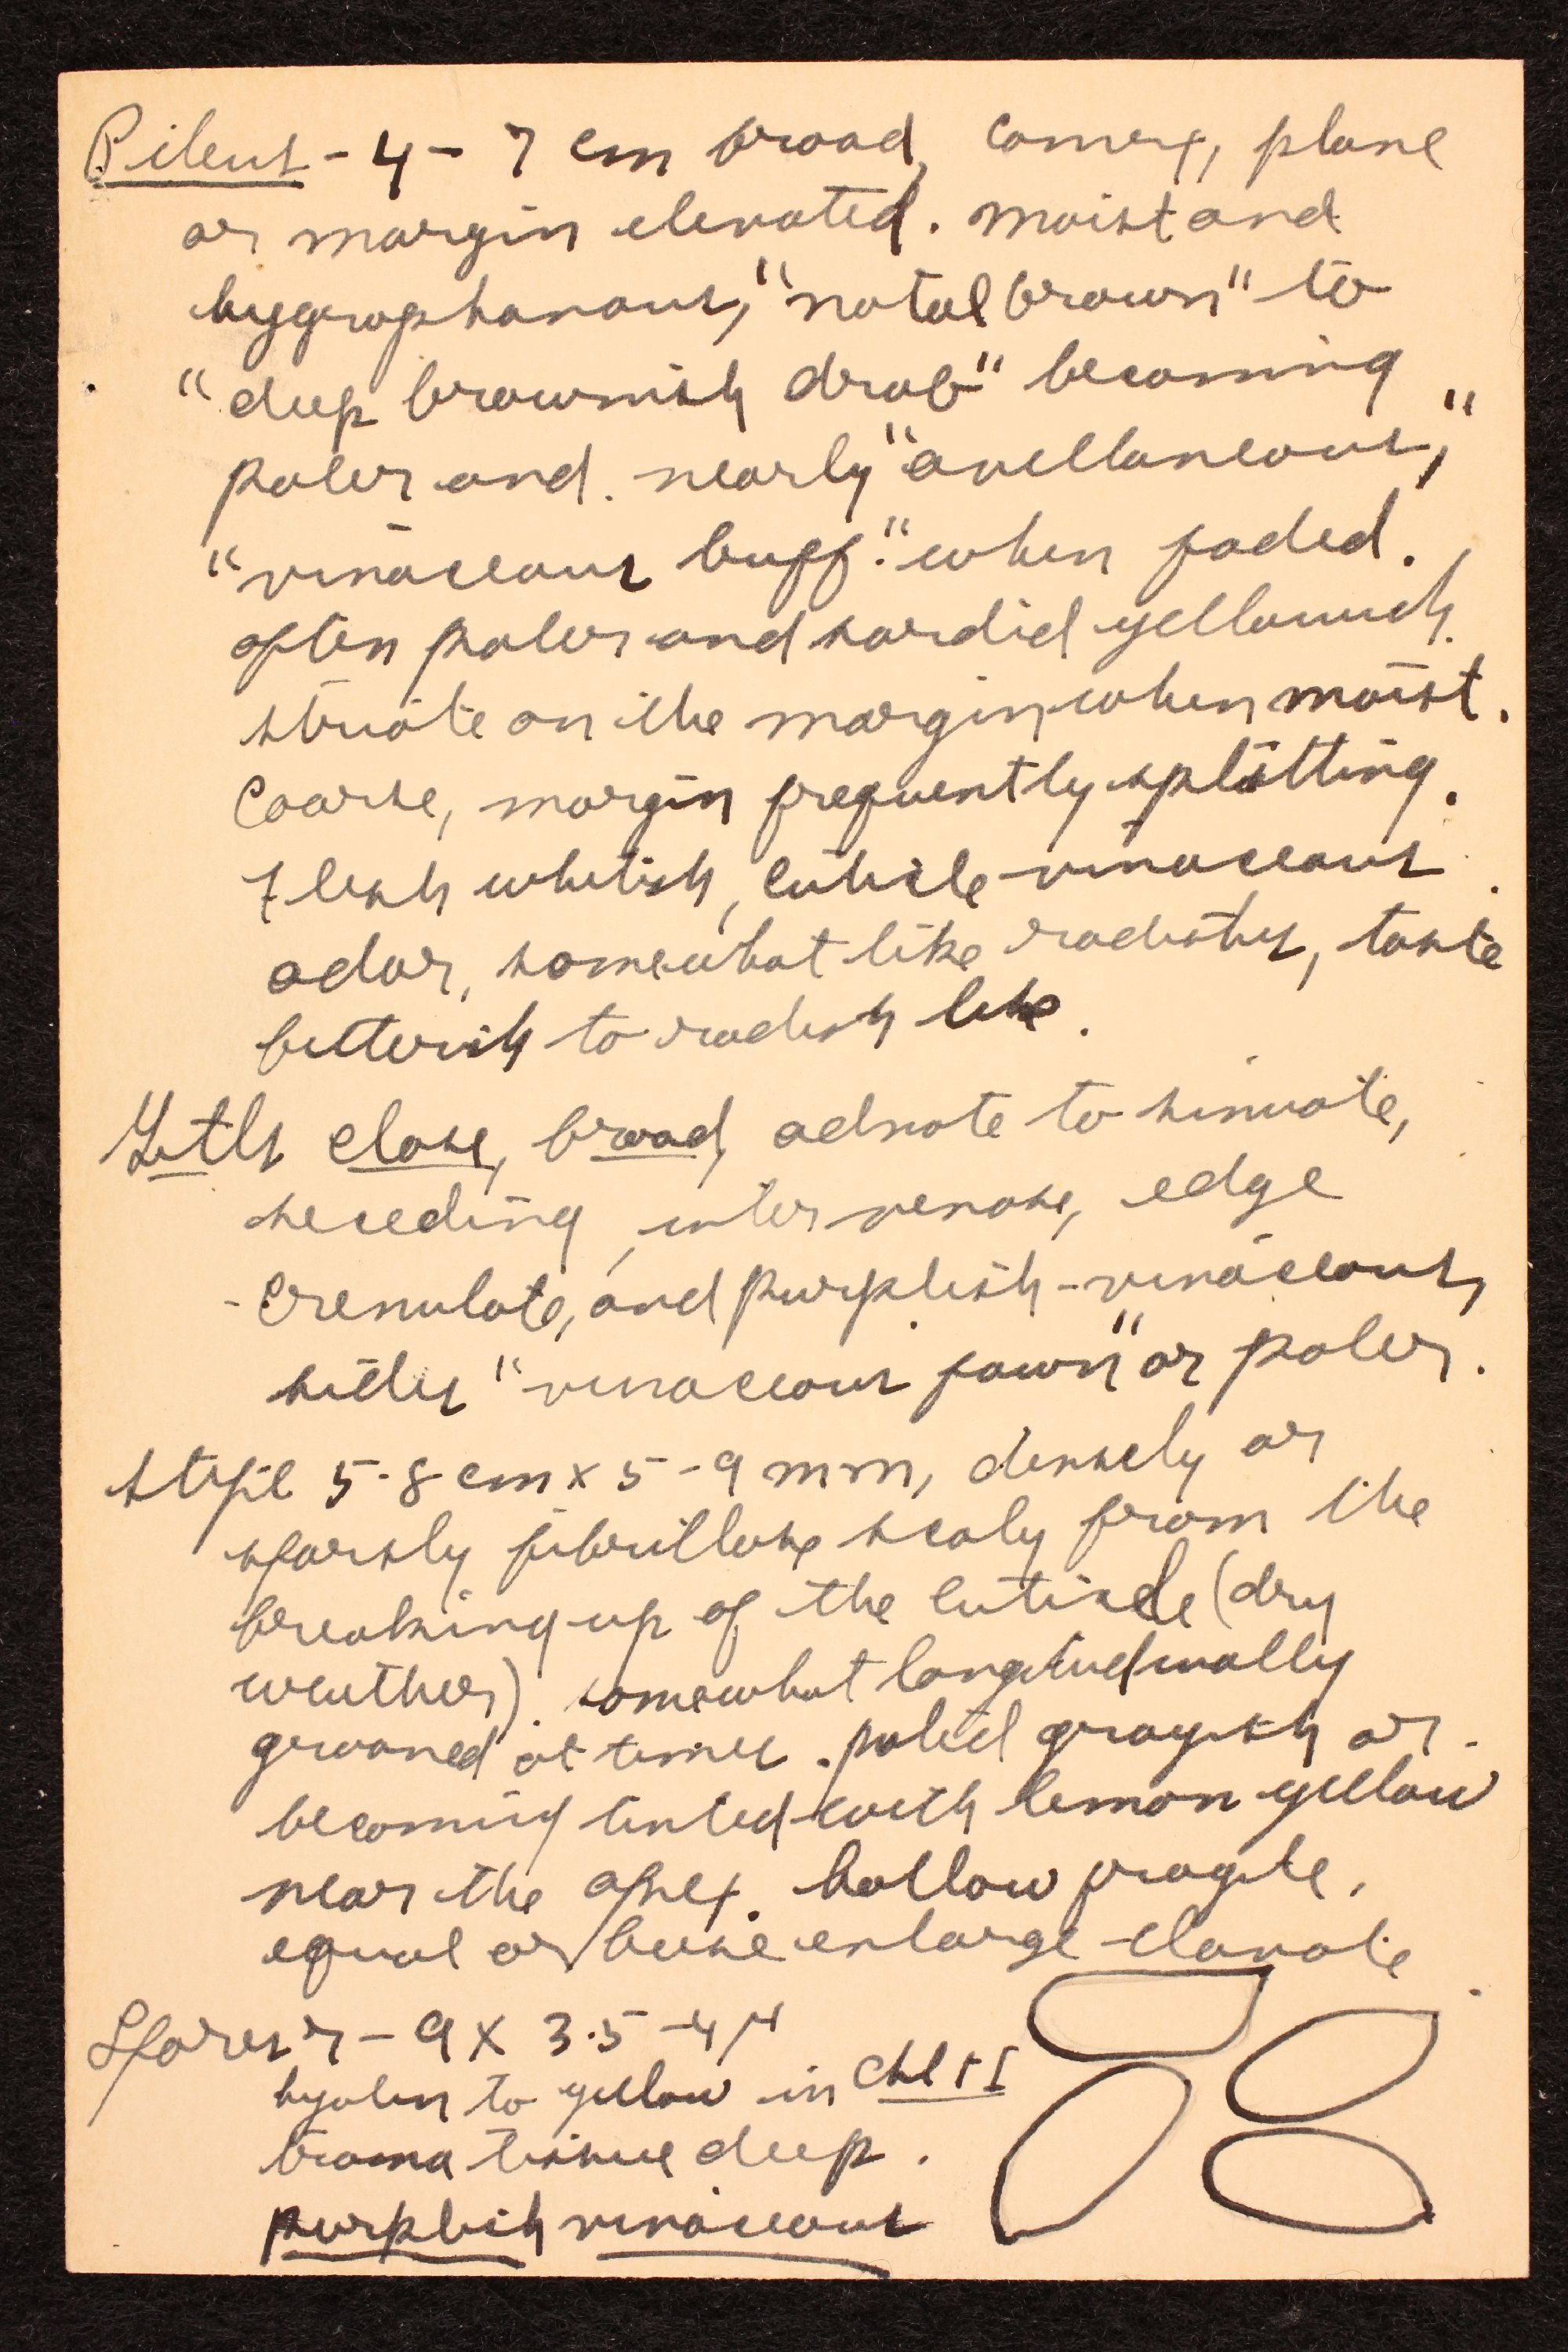 Pileus - 4 - 7 cm broad, convex, plane
or margin elevated. moist and
hygrophanous, "natal brown" to
"deep brownish drab" becoming
paler and nearly "avellaneous,"
"vinaceous buff." when faded.
often paler and sordid yellowish.
striate on the margin when moist.
Coarse, margin frequently splitting.
Flesh whitish, cuticle vinaceous.
odor, somewhat like radishes, taste
bitterish to radish like.
Gills close, broad, adnate to sinuate,
seceding, inter venose, edge
crenulate, and purplish-vinaceous,
sides "vinaceous fawn" or paler.
Stipe 5-8 cm x 5-9 mm, densely or
sparsly fibrillose scaly from the
breaking up of the cuticle (dry
weather). somewhat longitudinally
grooved at times. pallid grayish or
becoming tinted with lemon yellow
near the apex. hollow fragile,
equal or base enlarge - clavate
Spores 7-9 x 3.5-4 μ
hyalin to yellow in
trama tissue deep.
purplish vinaceous